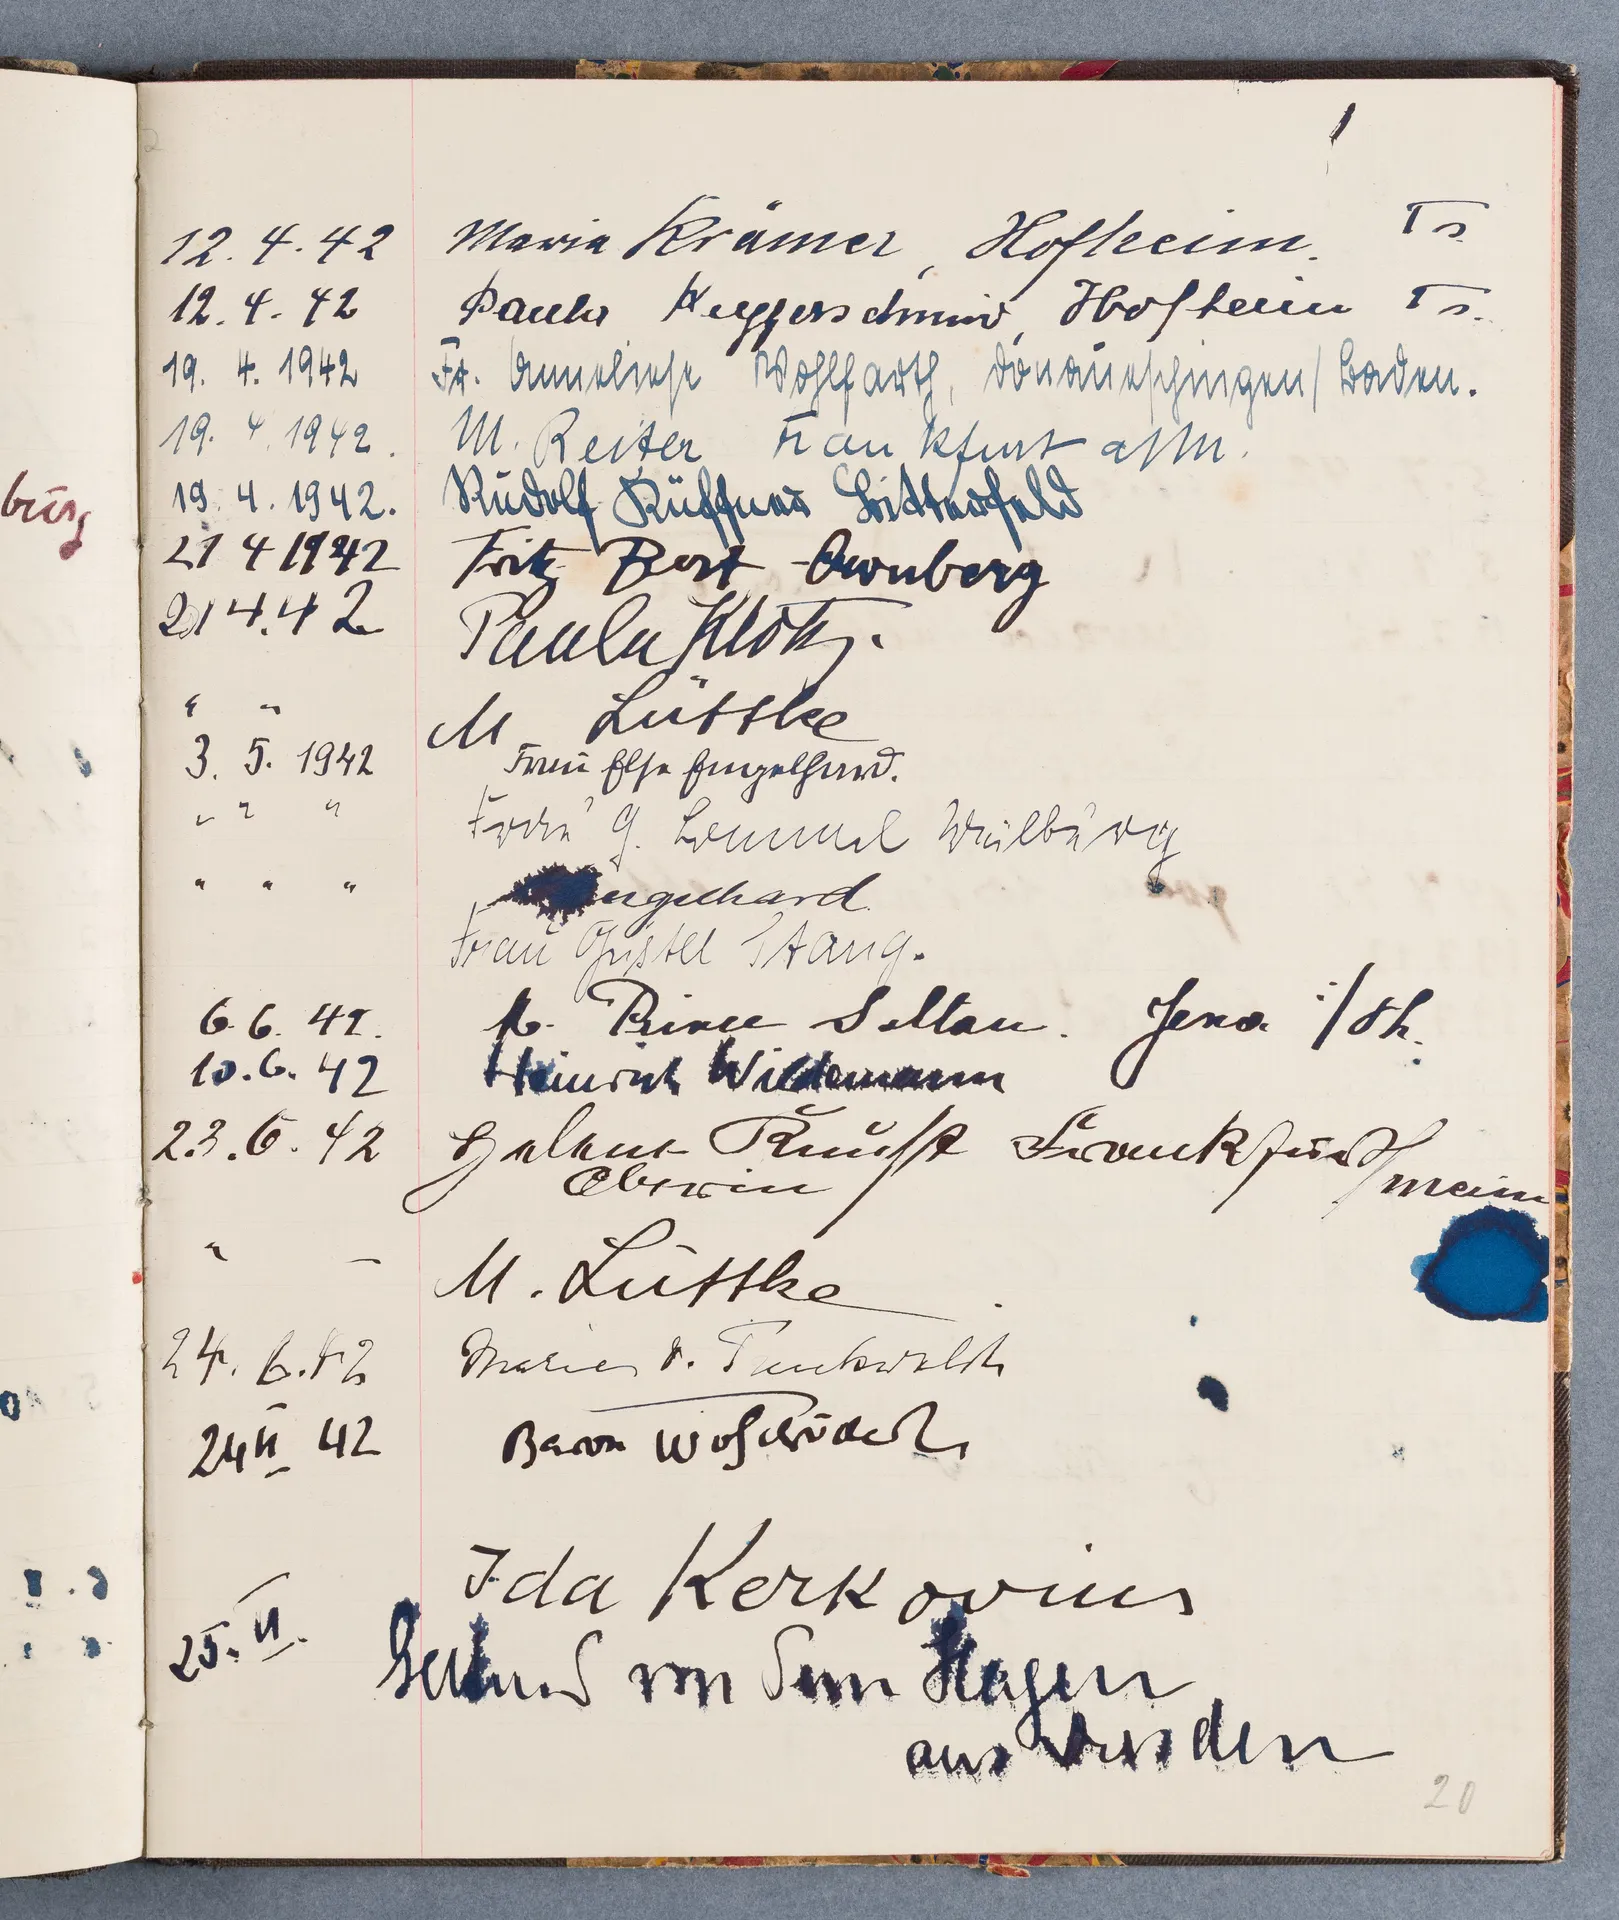 burg
12.4.42 Maria Krämer, Hofheim. Ts.
12.4.42 Paula Kupferschmid, Hofheim Ts.
19. 4. 1942 Fr. Anneliese Wohlfarth, Donaueschingen/Baden.
19. 4. 1942. M. Reiter Frankfurt a/M.
19. 4. 1942. Rudolf Küffner Bitterfeld
21 4 1942 Fritz Bort
21 4.42 Paula Klotz.
" " M Lüttke
3. 5. 1942 Frau Else Engelhard.
" " " Frau G. Lommel
" " " Engelhard
Frau Gustel Stang.
6.6.42. Jena i/Th.
10.6.42 Heinrich Wildemann
23.6.42 Helene Kunst Frankfurt/Main
" – M. Lüttke
24.6.42 Marie v.
24 VI 42 Baron
Ida Kerkovius
25. VI. Gertrud von dem Hagen
aus Dresden
20